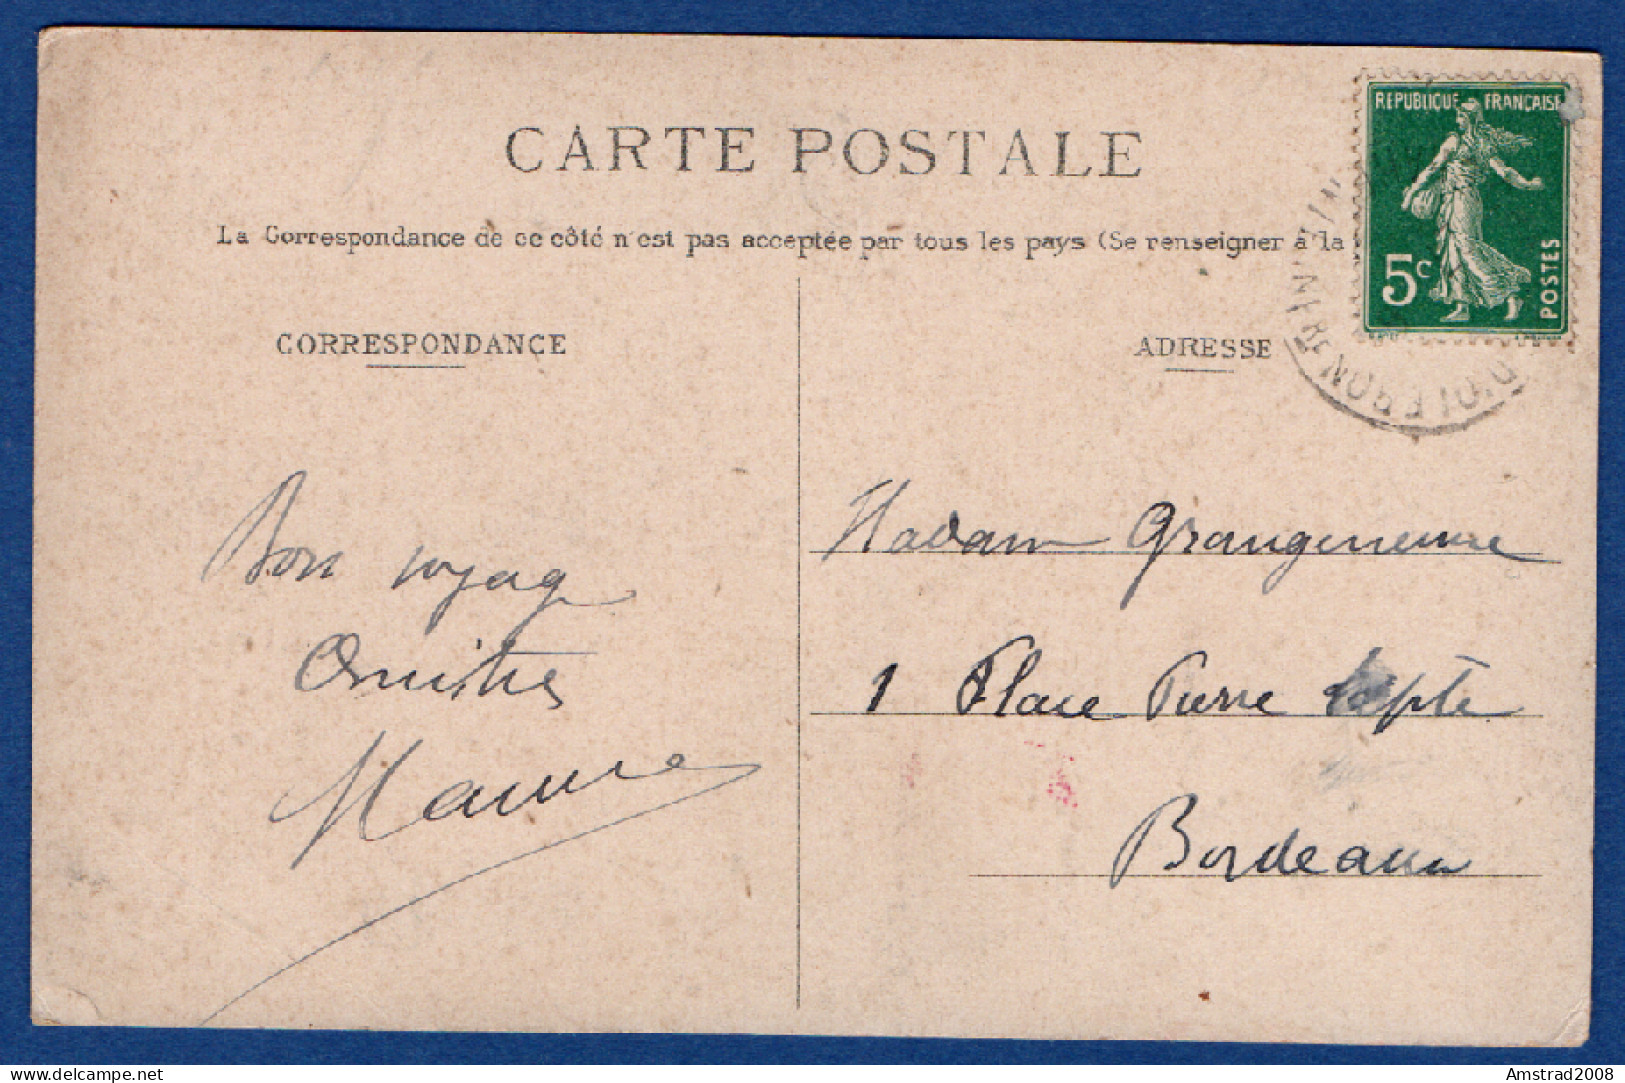 CARTE POSTALE
La Correspondance de ce côté n'est pas acceptée par tous les pays (Se renseigner à la
REPUBLIQUE FRANÇAISE
5c
POSTES
CORRESPONDANCE
ADRESSE
Bon voyag
Amities
Madam
1 Place Pierre
Bordeaux
Amstrad2008